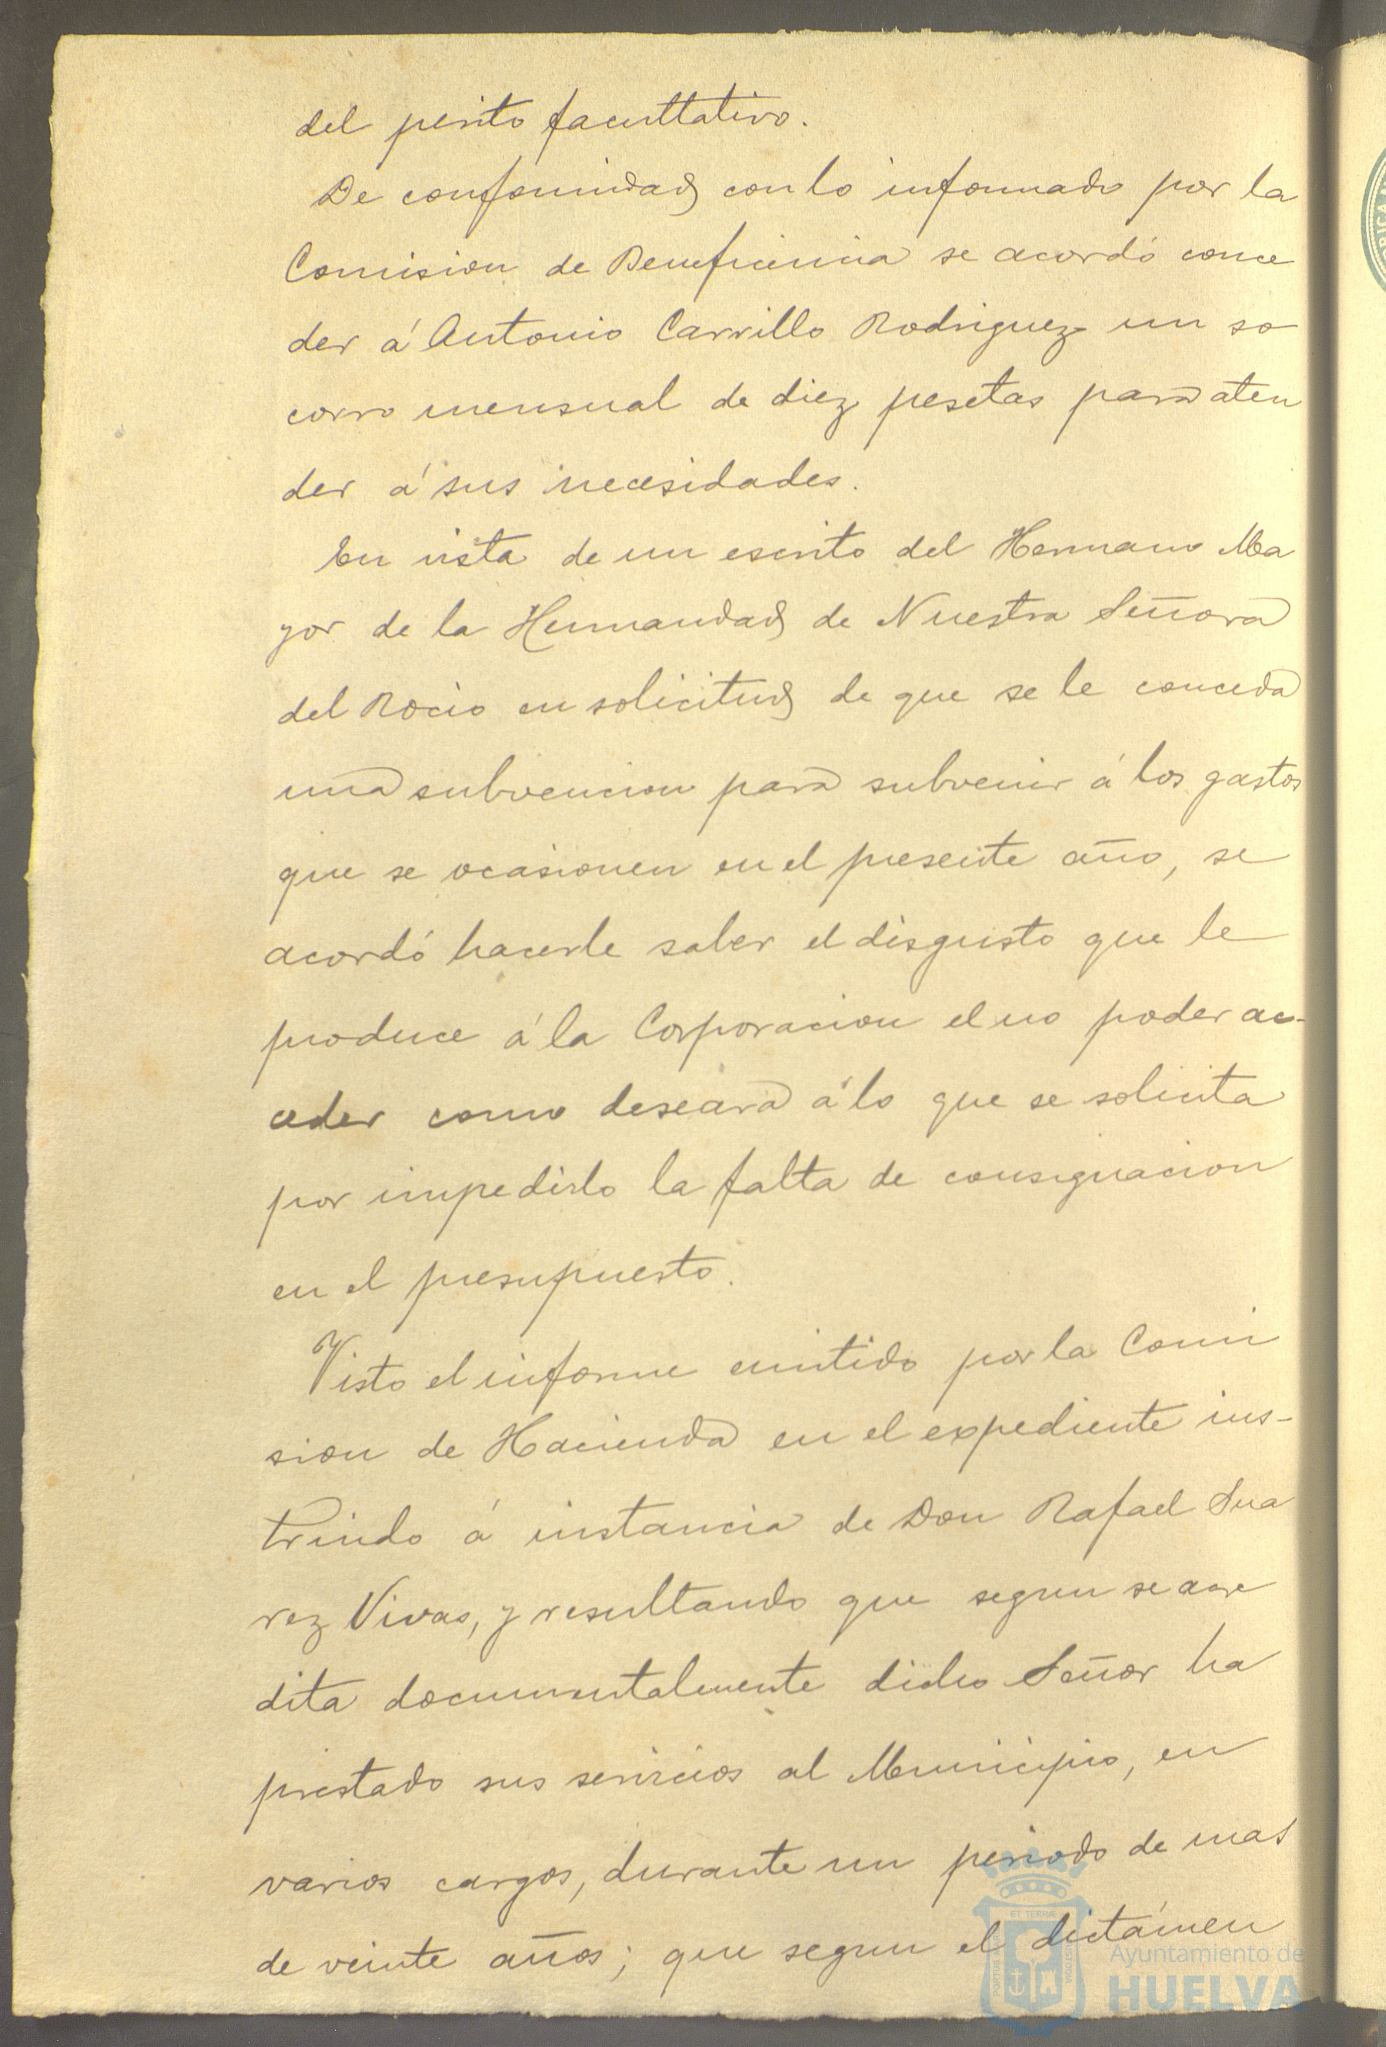 del perito facultativo.
De conformidad con lo informado por la
Comision de Beneficencia se acordó conce
der á Antonio Carrillo Rodriguez un so
corro mensual de diez pesetas para aten
der á sus necesidades.
En vista de un escrito del Hermano Ma
yor de la Hermandad de Nuestra Señora
del Rocio en solicitud de que se le conceda
una subvencion para subvenir á los gastos
que se ocasionen en el presente año, se
acordó hacerle saber el disgusto que le
produce á la Corporacion el no poder ac-
ceder como deseara á lo que se solicita
por impedirlo la falta de consignacion
en el presupuesto.
Visto el informe emitido por la Comi
sion de Hacienda en el expediente ins-
truido á instancia de Don Rafael Sua
rez Vivas, y resultando que segun se acre
dita documentalmente dicho Señor ha
prestado sus servicios al Municipio, en
varios cargos, durante un periodo de mas
de veinte años; que segun el dictámen
Ayuntamiento de
HUELVA